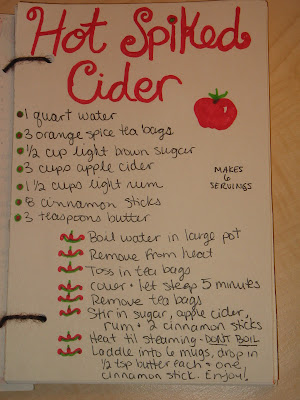 Hot Spiked
Cider
1 quart water
3 orange spice tea bags
1/2 cup light brown sugar
3 cups apple cider
1 1/2 cups light rum
8 cinnamon sticks
3 teaspoons butter
MAKES
6
SERVINGS
Boil water in large pot
Remove from heat
Toss in tea bags
cover + let steep 5 minutes
Remove tea bags
Stir in sugar, apple cider,
rum + 2 cinnamon sticks
Heat til steaming - DON'T BOIL
Laddle into 6 mugs, drop in
1/2 tsp butter each + one
cinnamon stick. Enjoy!